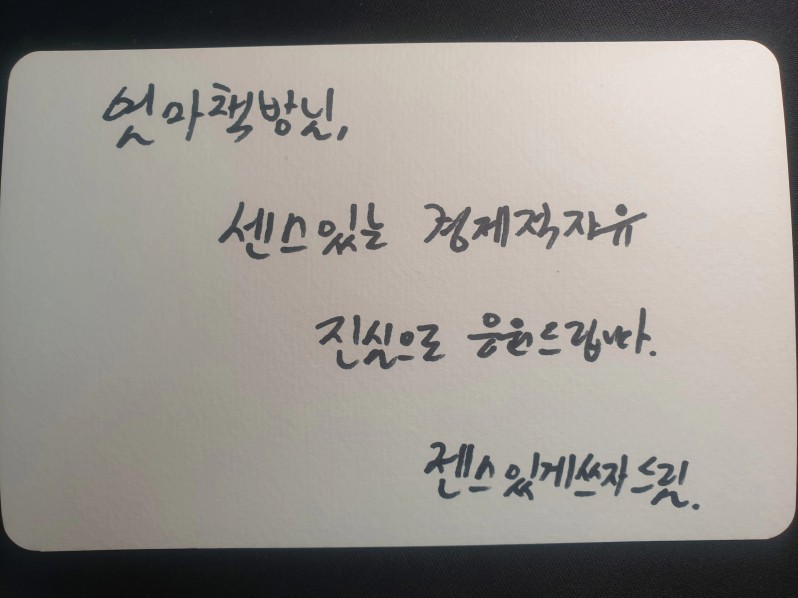 엄마책방님,
센스있는 경제적자유
진심으로 응원드립니다.
젠스있게쓰자 드림.